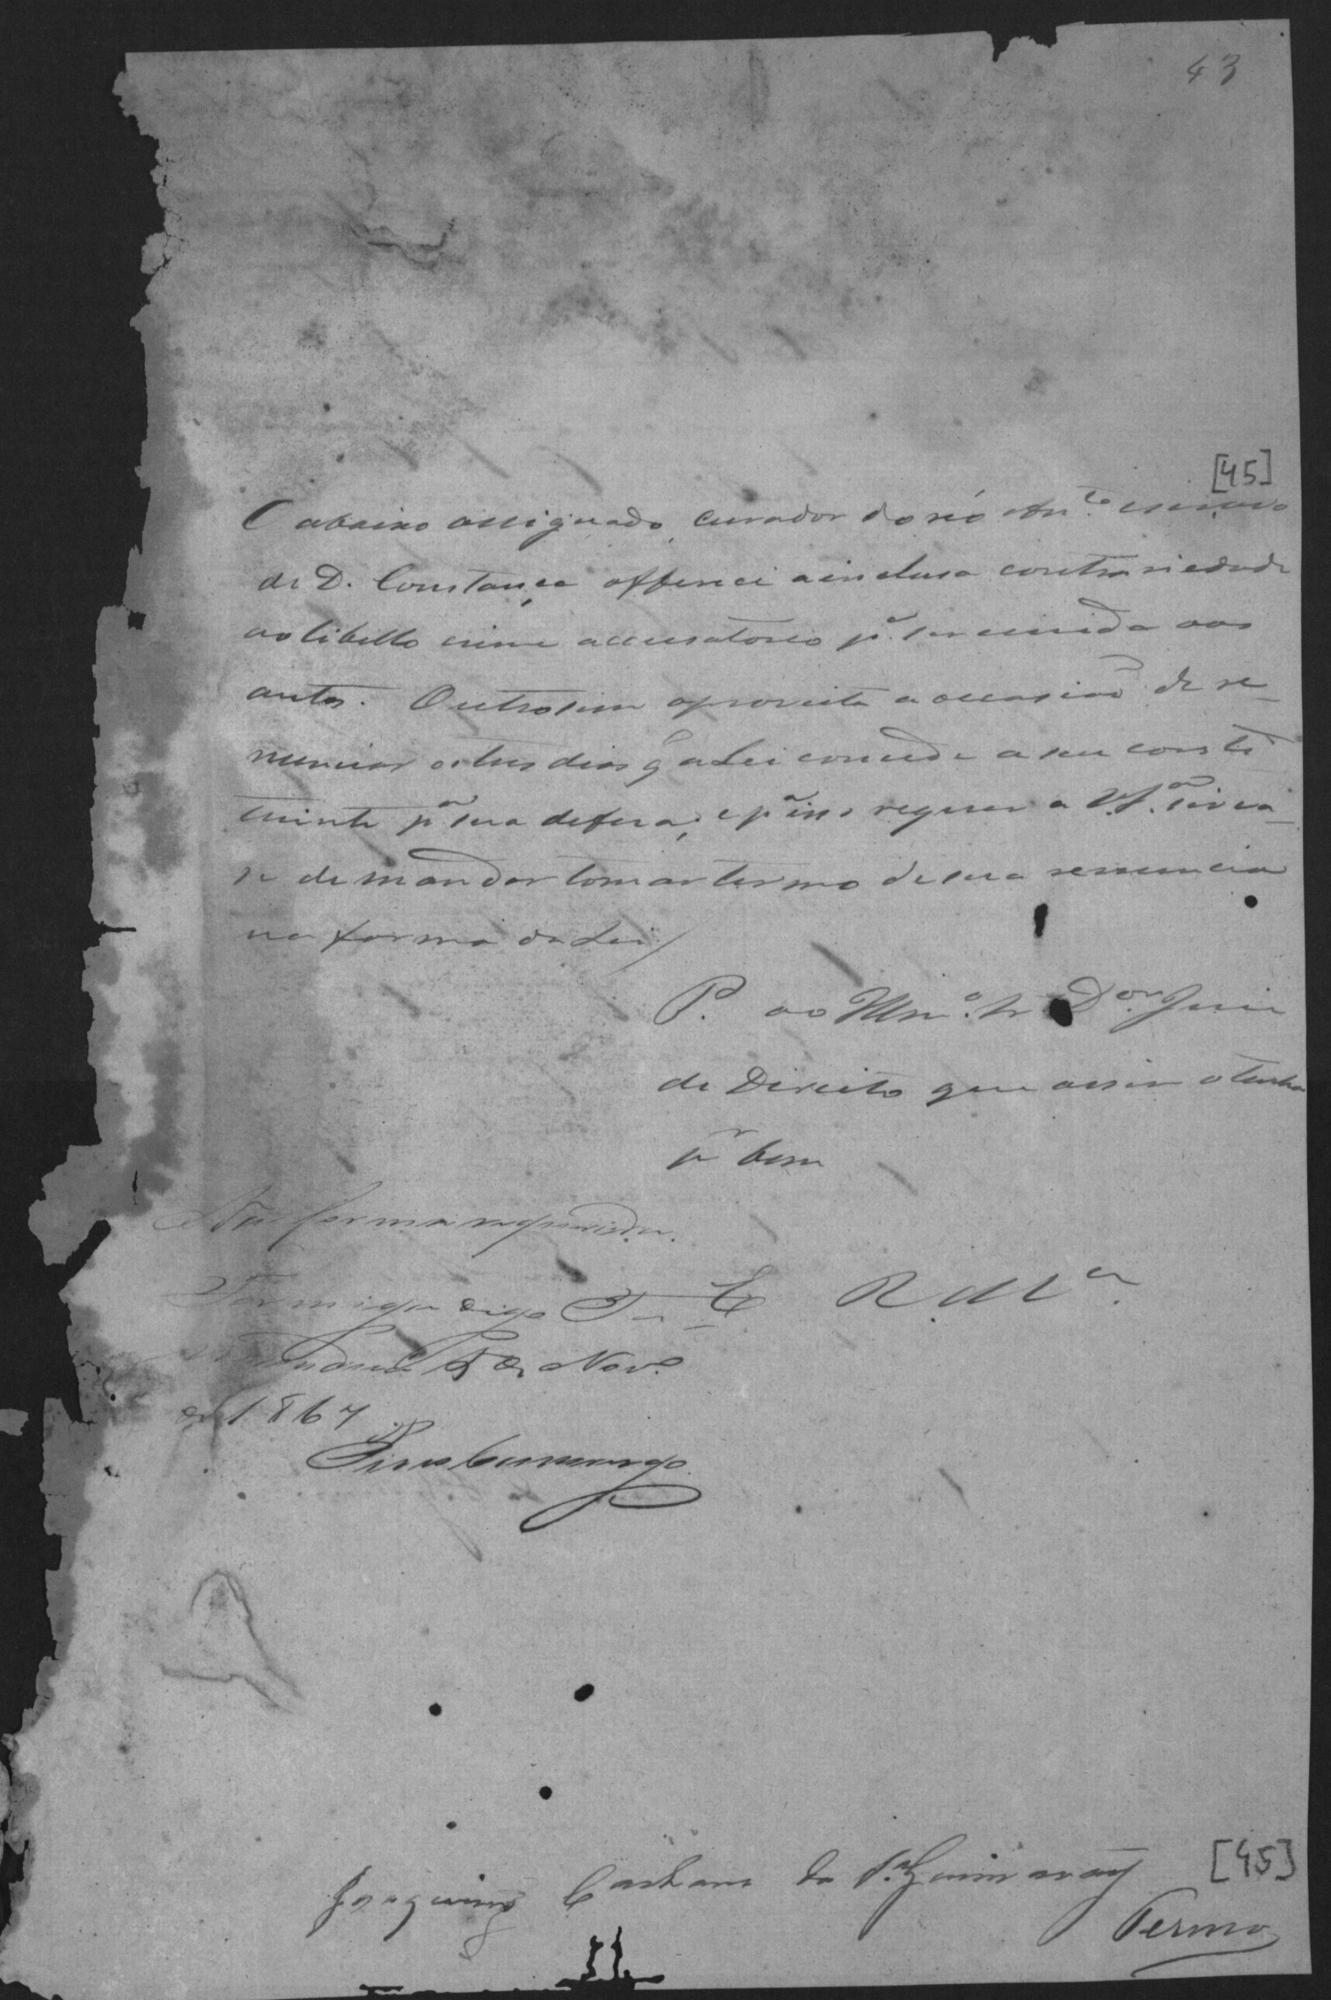 43
[45]
O abaixo assignado, curador do réo Ant.º escravo
de D. Constança offerece a inclusa contrariedade
ao libello crime accusatorio p.ª ser unida aos
autos. Outrosim aproveita a occasião de re-
nunciar os tres dias q̃ a Lei concede a seu consti
tuinte p.ª sua defesa; e p.ª isso requer a V. S.ª sirva-
se de mandar tomar termo de sua renuncia
na forma da Lei
P. ao Illm.º Sr D.or Juiz
de Direito que assim o tenha
p.r bem
Na forma requerida.
E. R. M.ce
Formiga digo
5 de Nov.º
de 1867
Pires Camargo
Joaquim Caetano da S.ª Guimarães
[45]
Termo